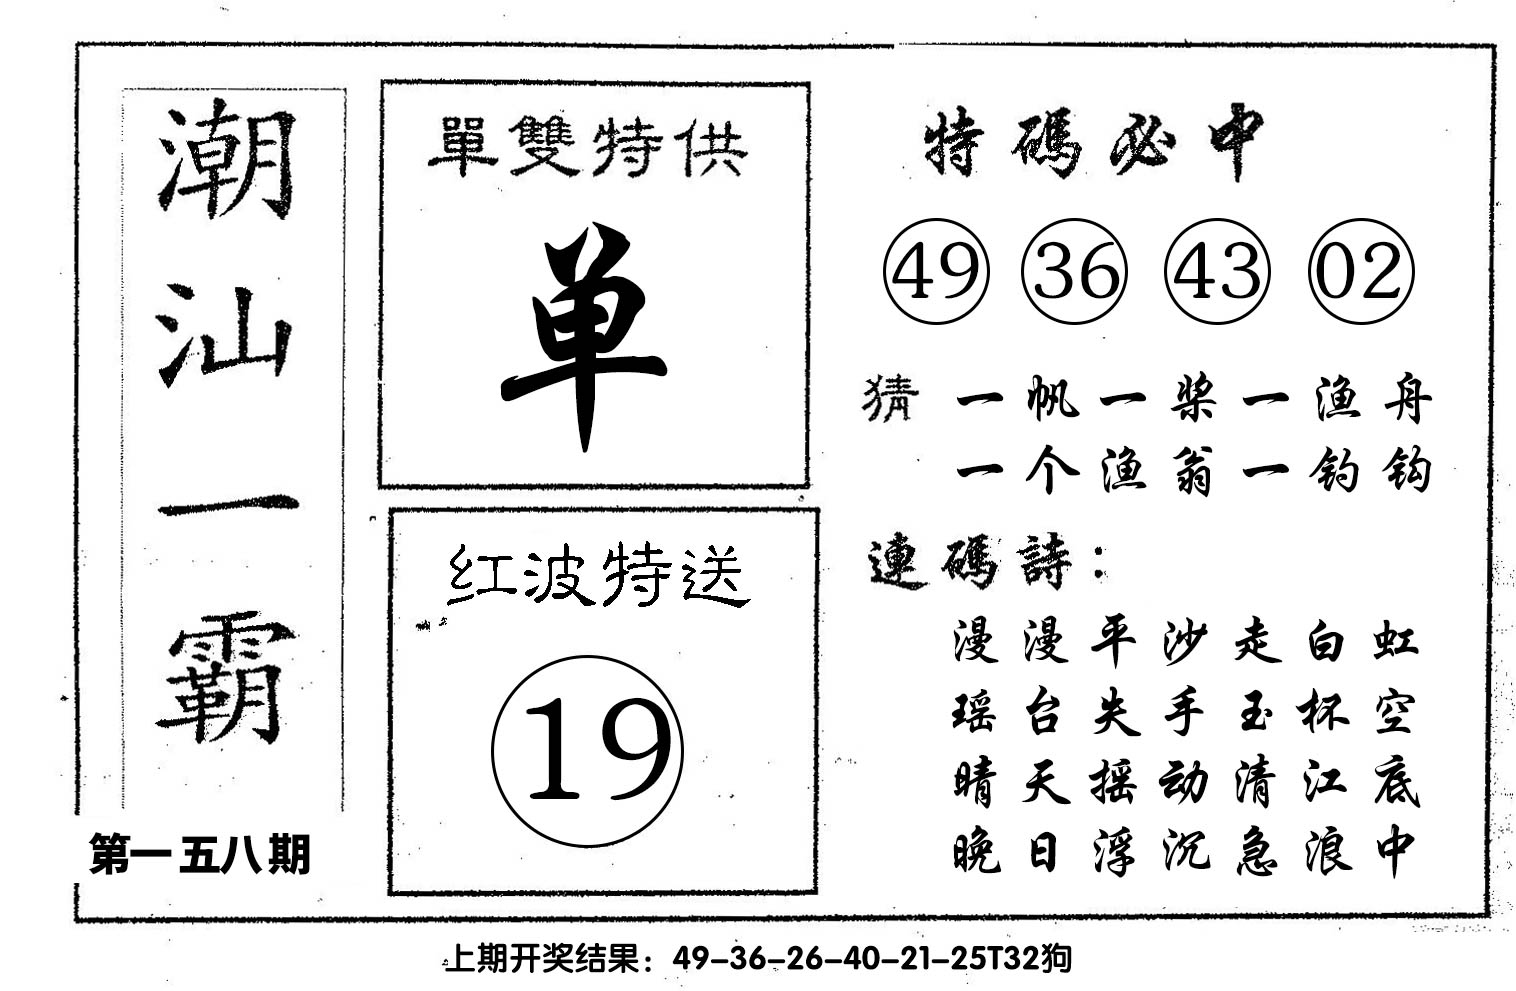 潮汕一霸
第一五八期
單雙特供
单
红波特送
19
特碼必中
49 36 43 02
猜 一帆一桨一渔舟
一个渔翁一钓钩
連碼詩：
漫漫平沙走白虹
瑶台失手玉杯空
晴天摇动清江底
晚日浮沉急浪中
上期开奖结果：49-36-26-40-21-25T32狗